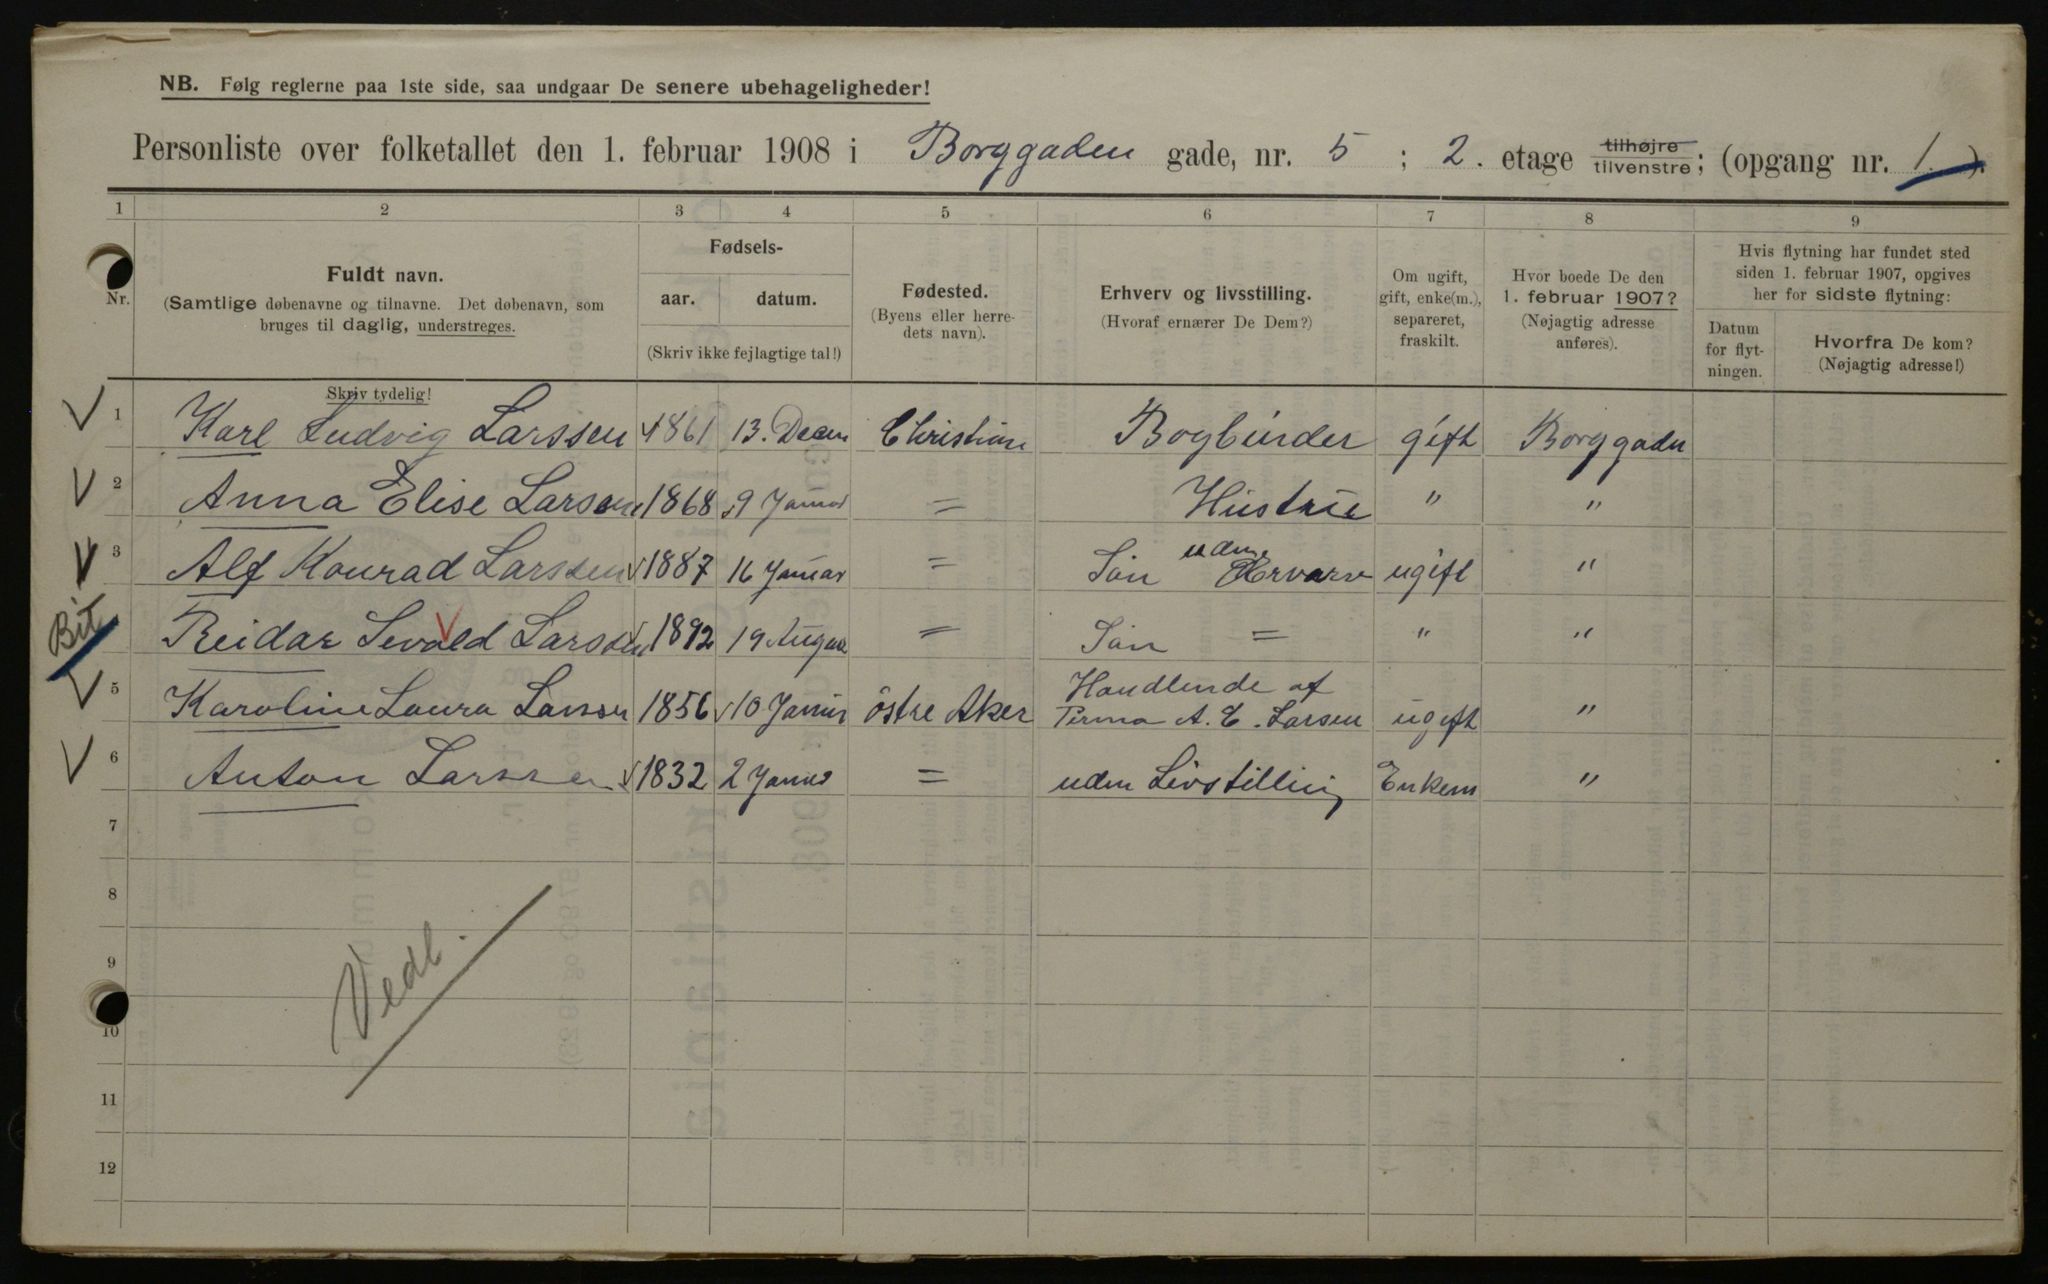 NB. Følg reglerne paa 1ste side, saa undgaar De senere ubehageligheder!
Personliste over folketallet den 1. februar 1908 i Borggaden gade, nr. 5 ; 2. etage tilhøjre tilvenstre; (opgang nr. 1. ).
1 2 3 4 5 6 7 8 9
Nr.
Fuldt navn.
(Samtlige døbenavne og tilnavne. Det døbenavn, som
bruges til daglig, understreges.
Skriv tydelig!
Fødsels-
aar. datum.
(Skriv ikke fejlagtige tal!)
Fødested.
(Byens eller herre-
dets navn).
Erhverv og livsstilling.
(Hvoraf ernærer De Dem?)
Om ugift,
gift, enke(m.),
separeret,
fraskilt.
Hvor boede De den
1. februar 1907?
(Nøjagtig adresse
anføres).
Hvis flytning har fundet sted
siden 1. februar 1907, opgives
her for sidste flytning:
Datum
for flyt-
ningen.
Hvorfra De kom?
(Nøjagtig adresse!)
1 Karl Ludvig Larssen 1861 13. Decem Christian Bogbinder gift Borggaden
2 Anna Elise Larsen 1868 9 Januar = Hustrue " "
3 Alf Konrad Larssen 1887 16 Januar = Sön uden Erværv ugift "
Bit Reidar Sevald Larssen 1892 19 August = Sön = " "
5 Karoline Laura Larsen 1856 10 Januar östre Aker Handlende af
Firma A. E. Larsen ugift "
6 Anton Larssen 1832 2 Januar = uden Livstilling Enkem "
7
8
9
10
11
12
Vedl.